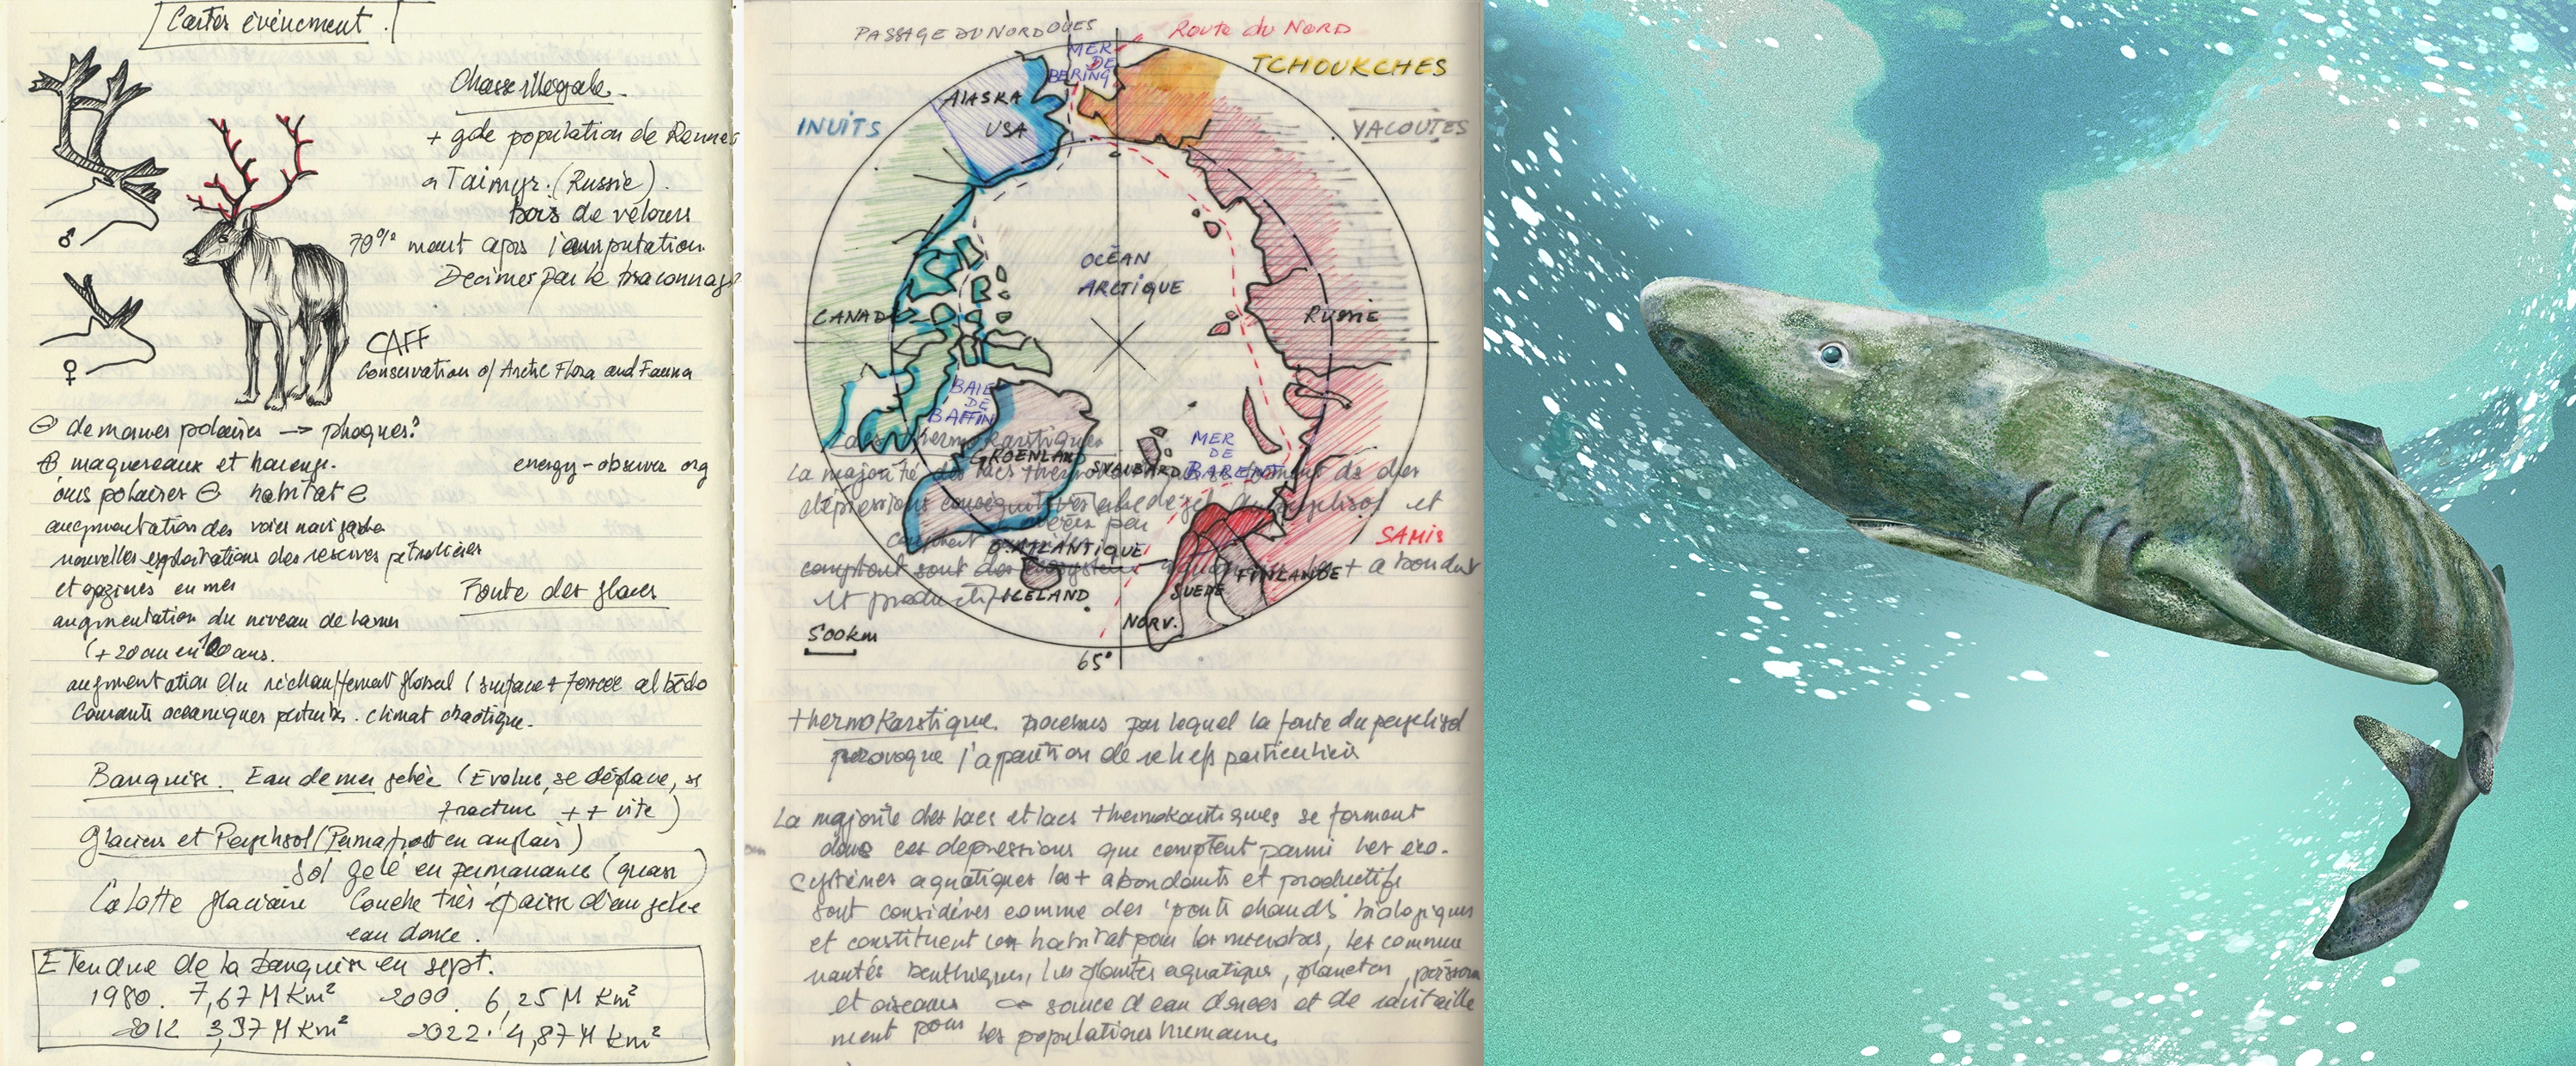 Cartes événement.
Chasse illégale.
+ gde population de Rennes
à Taimyr. (Russie).
bois de velours
70% meurt après l'amputation
Decimés par le braconnage
♂
♀
CAFF
Conservation of Arctic Flora and Fauna
⊖ de morues polaires → phoques?
⊕ maquereaux et harengs.
energy-observer org
ours polaires ⊖ habitat ⊖
augmentation des voies navigable
nouvelles exploitations des réserves pétrolières
et gazières en mer
Fonte des glaces
augmentation du niveau de la mer
(+ 20 cm en ans.
augmentation du réchauffement global (surface + foncée albédo
Courants océaniques perturbés. climat chaotique.
Banquise. Eau de mer gelée (Evolue, se déplace, se
fracture ++ vite)
Glaciers et Pergélisol (Permafrost en anglais)
Sol gelé en permanance (quasi)
Calotte glaciaire Couche très épaisse d'eau gelée
eau douce.
Etendue de la banquise en sept.
1980. 7,67 M Km² 2000. 6,25 M Km²
2012 3,37 M Km² 2022. 4,87 M km²
PASSAGE DU NORD OUES
Route du NORD
MER
DE
BERING
TCHOUKCHES
ALASKA
USA
INUITS
YACOUTES
OCÉAN
ARCTIQUE
CANADA
RUSSIE
BAIE
DE
BAFFIN
MER
DE
BARENTS
GROENLAND
SVALBARD
La majorité des lacs
dépressions
SAMIS
O. ATLANTIQUE
comptent sont des écosystèmes + abondant
et productif
FINLANDE
SUEDE
ICELAND
NORV.
500km
65°
thermokarstique. processus par lequel la fonte du pergélisol
provoque l'apparition de reliefs particuliers
La majorité des lacs et lacs thermokarstiques se forment
dans ces depressions que comptent parmi les éco-
systèmes aquatiques les + abondants et productifs
sont considérés comme des 'points chauds' biologiques
et constituent un habitat pour les microbes, les commu
nautés benthiques, les plantes aquatique, plancton, poissons
et oiseaux source d'eau douces et de ravitaille
ment pour les populations humaines